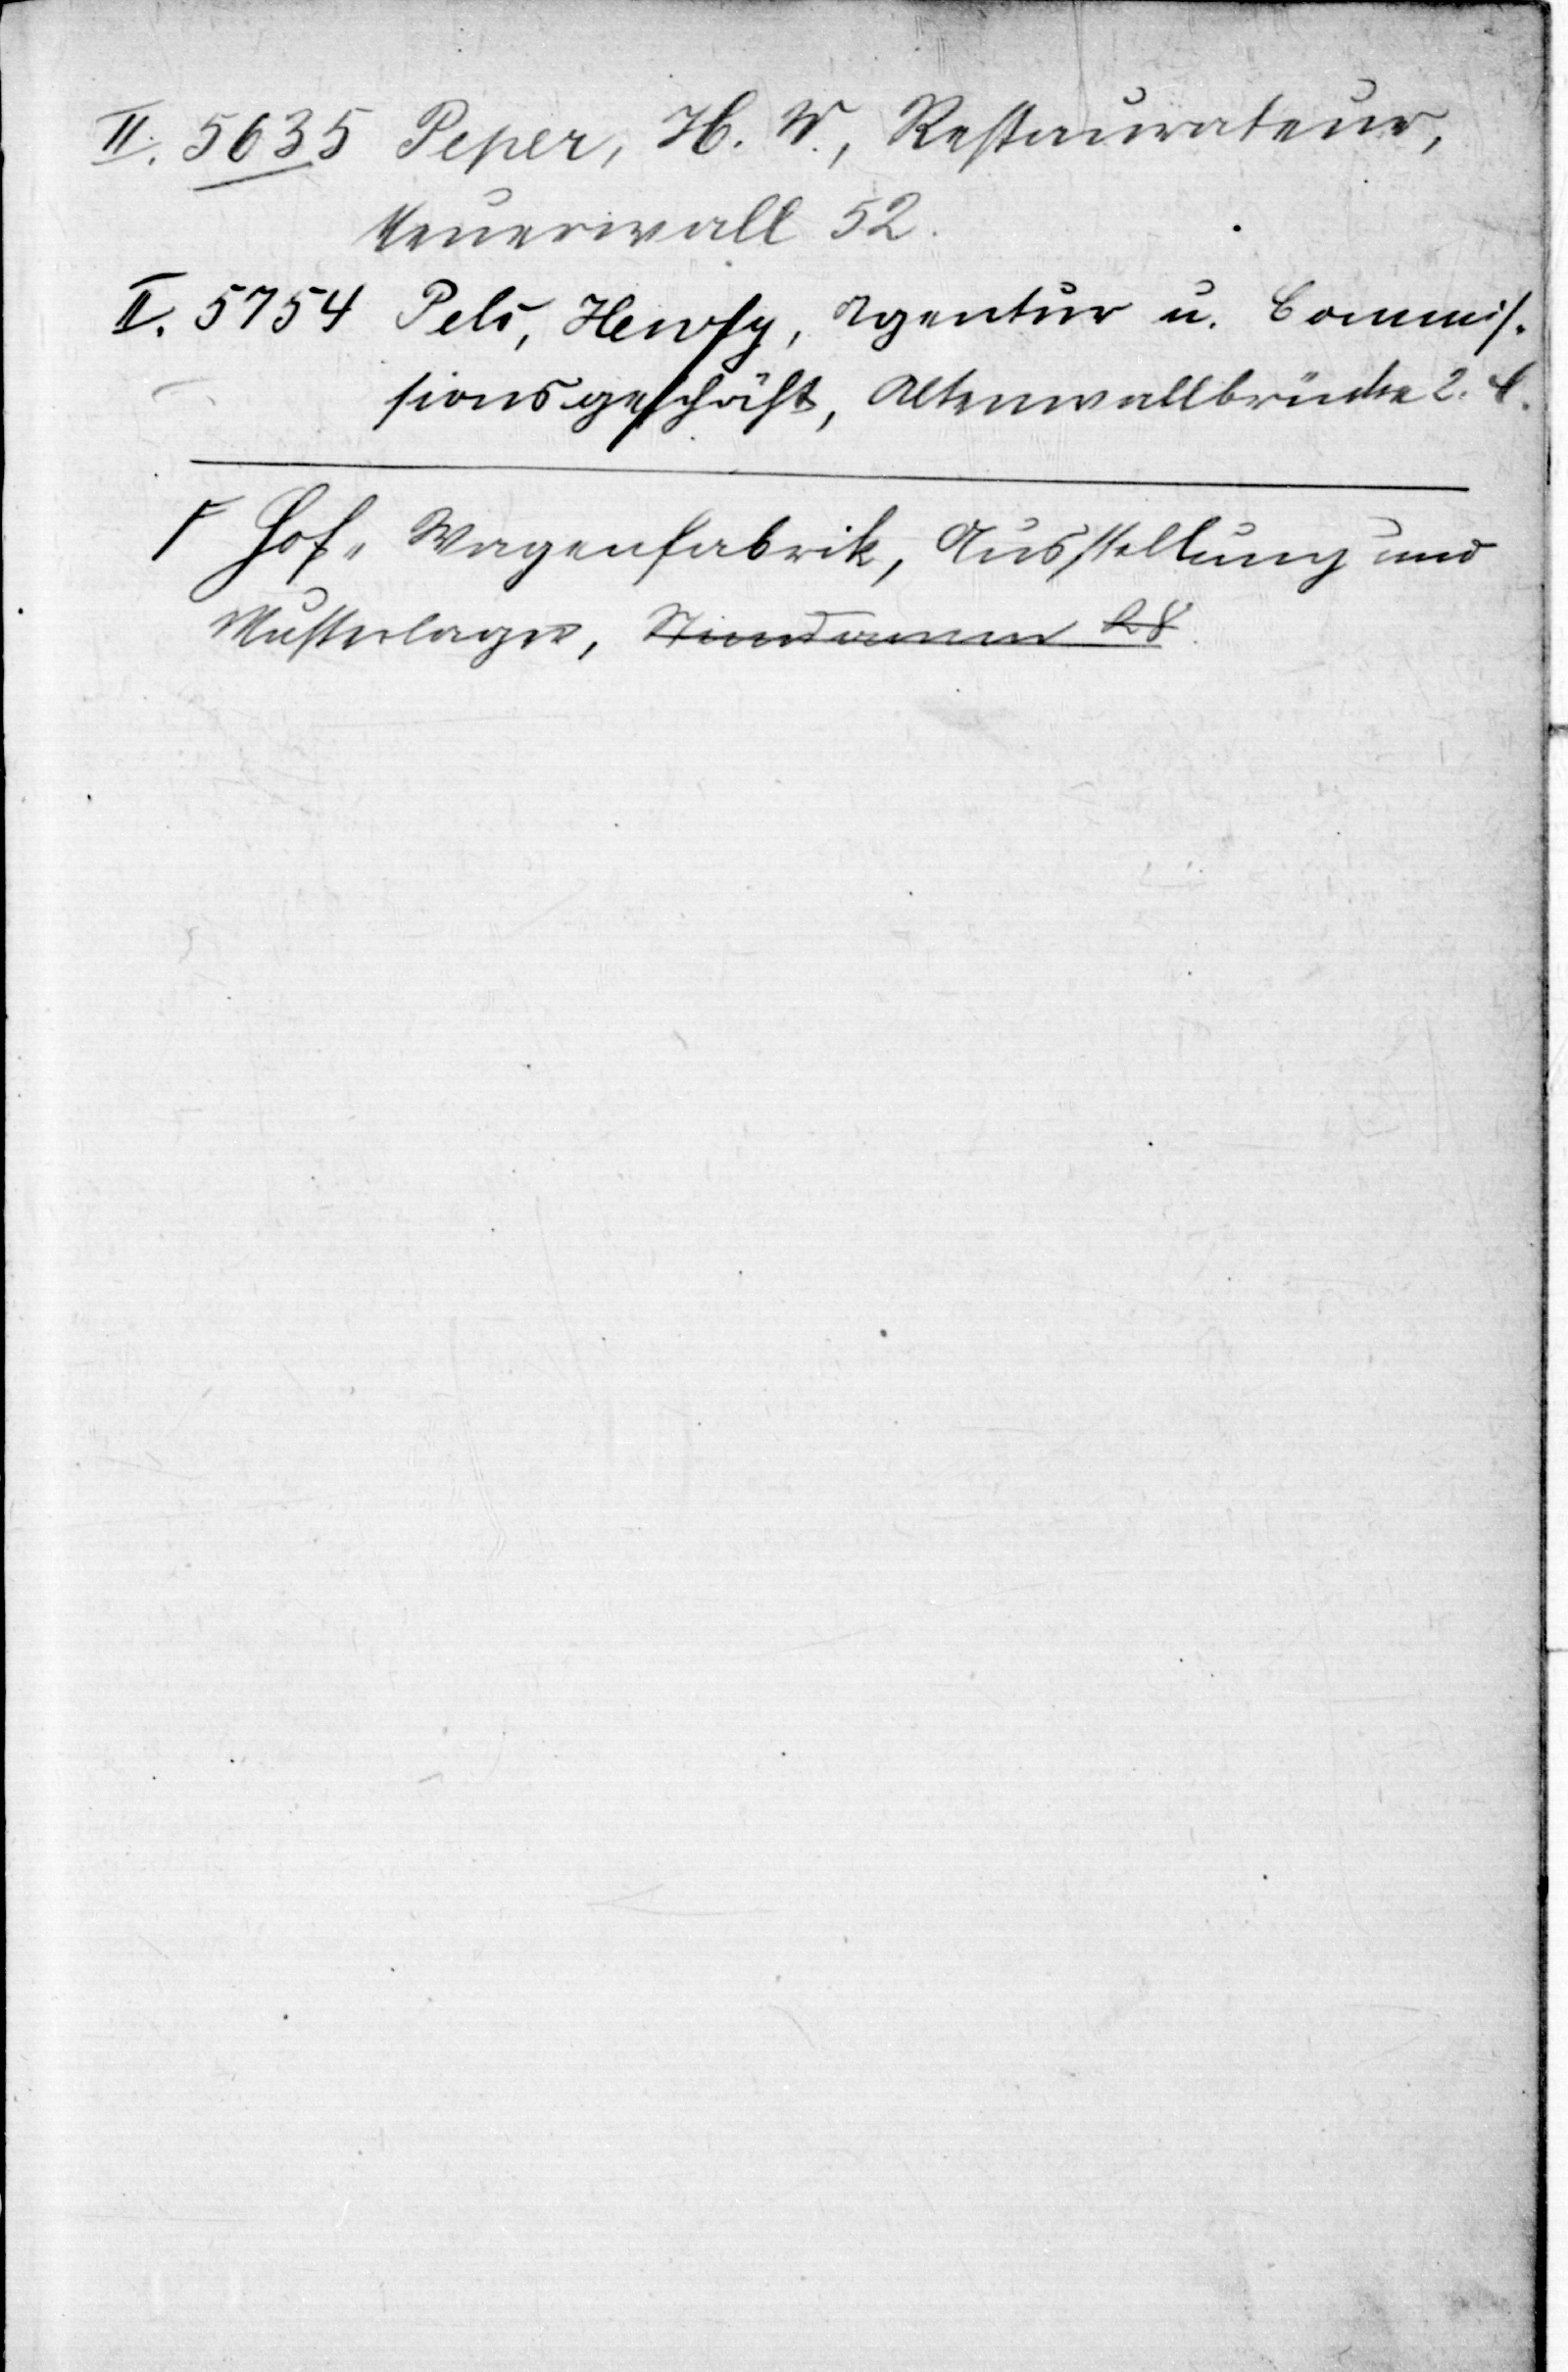 II. 5635 Peper, H. W., Restaurateur,
Neuerwall 52.
II. 5754 Pels, Henry, Agentur u. Commis-
sionsgeschäft, Altenwallbrücke 2.
Hof-Wagenfabrik, Ausstellung und
Musterlager, Steindamm 28.